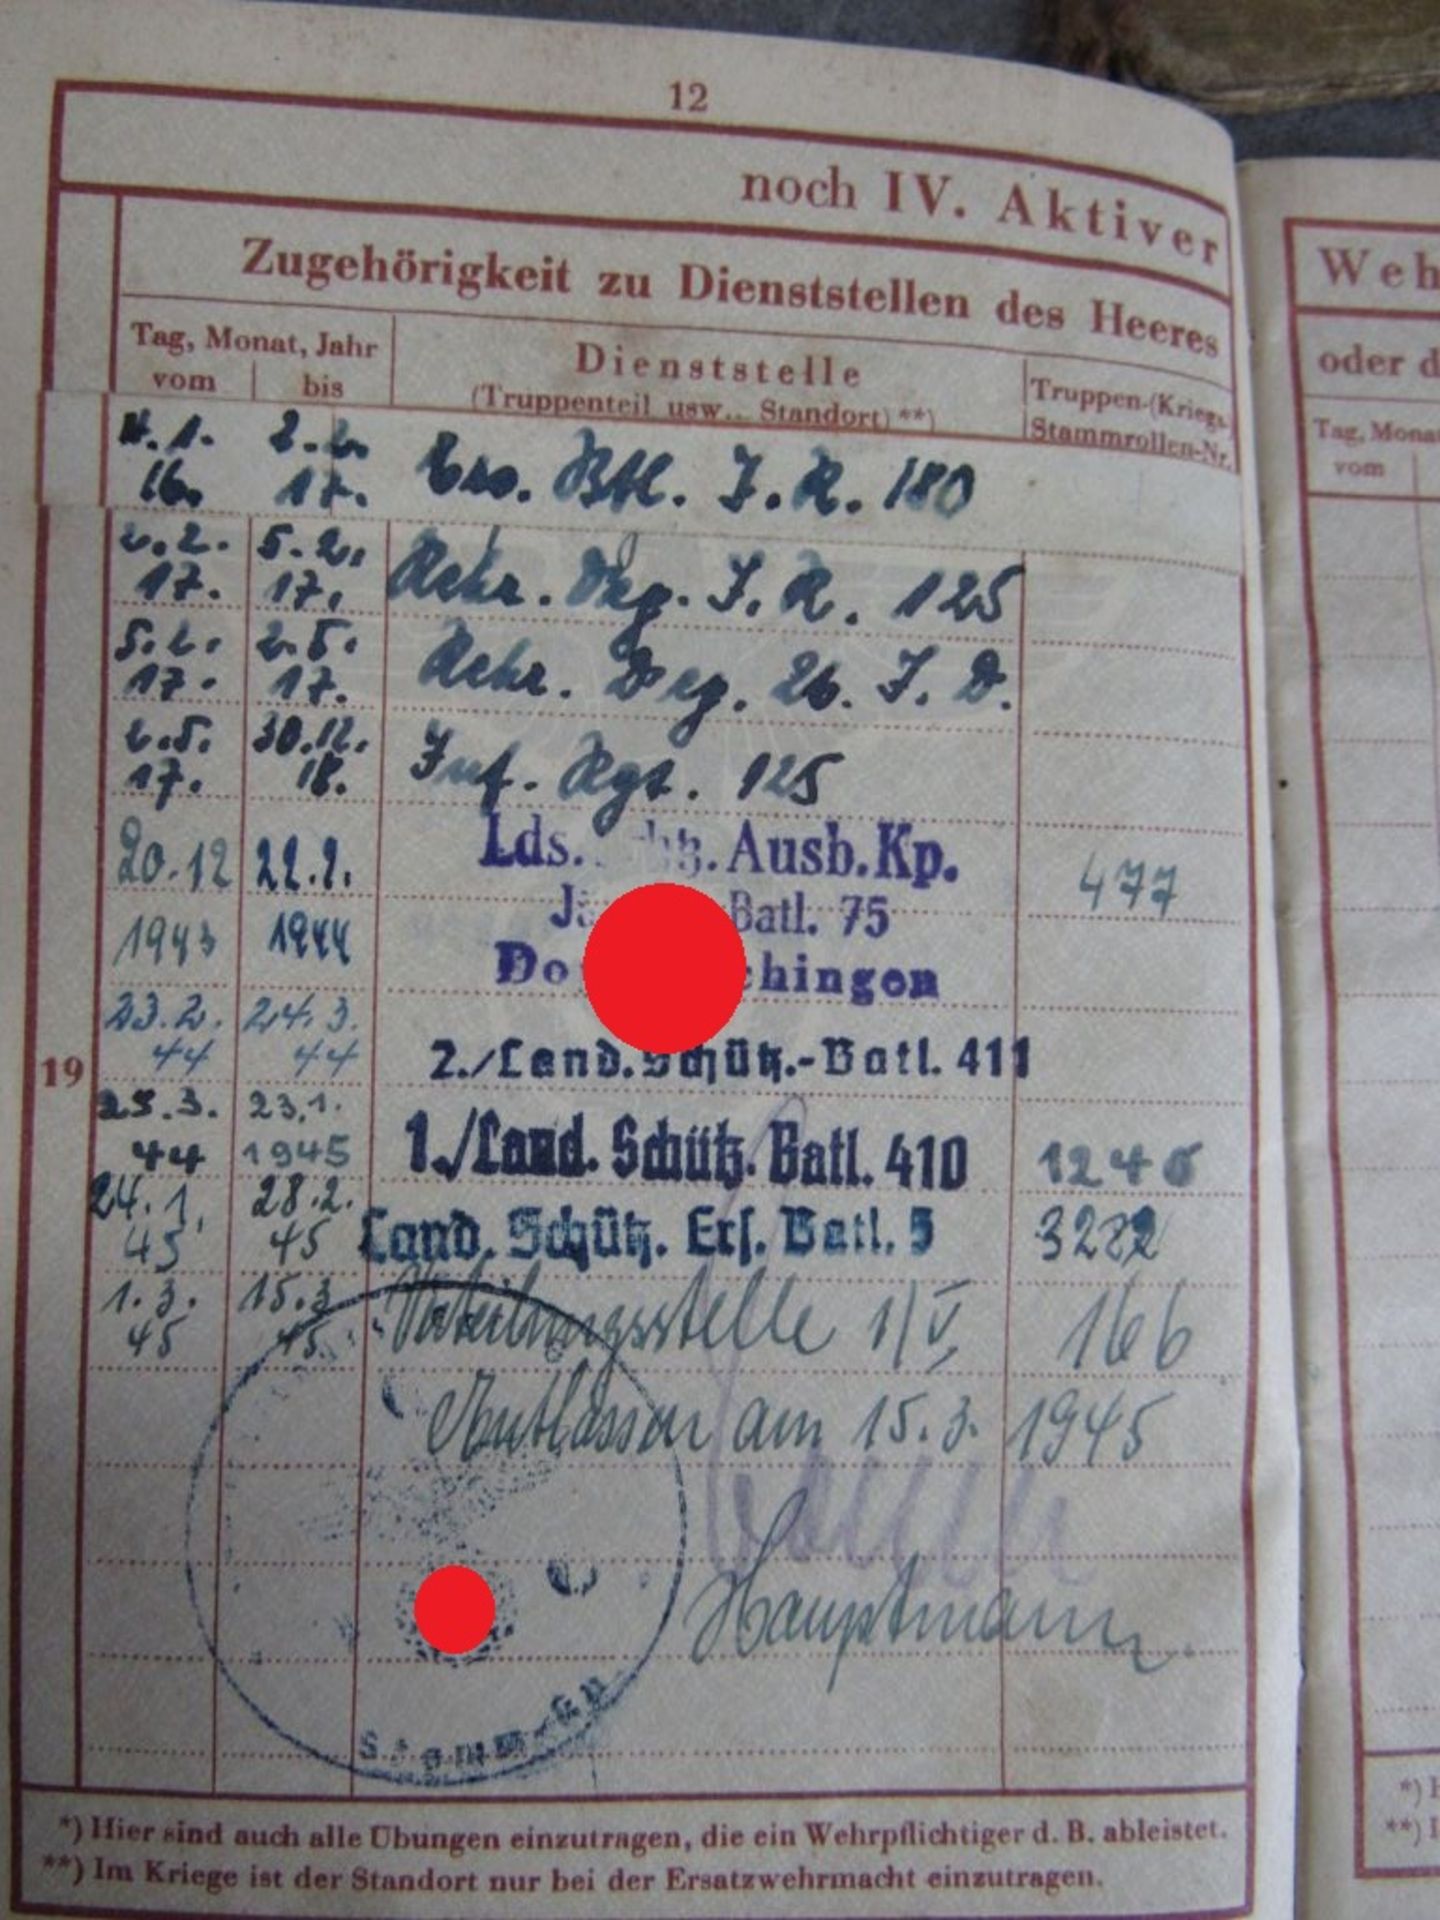 12
noch IV. Aktiver
Zugehörigkeit zu Dienststellen des Heeres
Tag, Monat, Jahr
vom bis
Dienststelle
(Truppenteil usw.. Standort) **)
Truppen-(Kriegs-)
Stammrollen-Nr.
1. 2.2.
16. 17. Ers. Btl. I.R. 180
2.2. 5.2.
17. 17. Rekr. I.R. 125
5.2. 2.5.
17. 17. Rekr. 26. I.D.
2.5. 30.12.
17. 18. Inf. Rgt. 125
Lds. Ausb.Kp.
20.12 22.2. 477
Batl. 75
1943 1944
chingen
23.2. 24.3.
44 44 2./Land.Schütz.-Batl. 411
19
25.3. 23.1.
44 1945 1./Land. Schütz. Batl. 410
24.1. 28.2.
45 45 Land. Schütz. Ers. Batl. 5 3282
1.3. 15.3
45 45. 1/V, 166
Entlassen am 15.3. 1945
Hauptmann.
Stamm-Kp
*) Hier sind auch alle Übungen einzutragen, die ein Wehrpflichtiger d. B. ableistet.
**) Im Kriege ist der Standort nur bei der Ersatzwehrmacht einzutragen.
Weh
oder d
Tag, Mona
vom
*) H
**) I